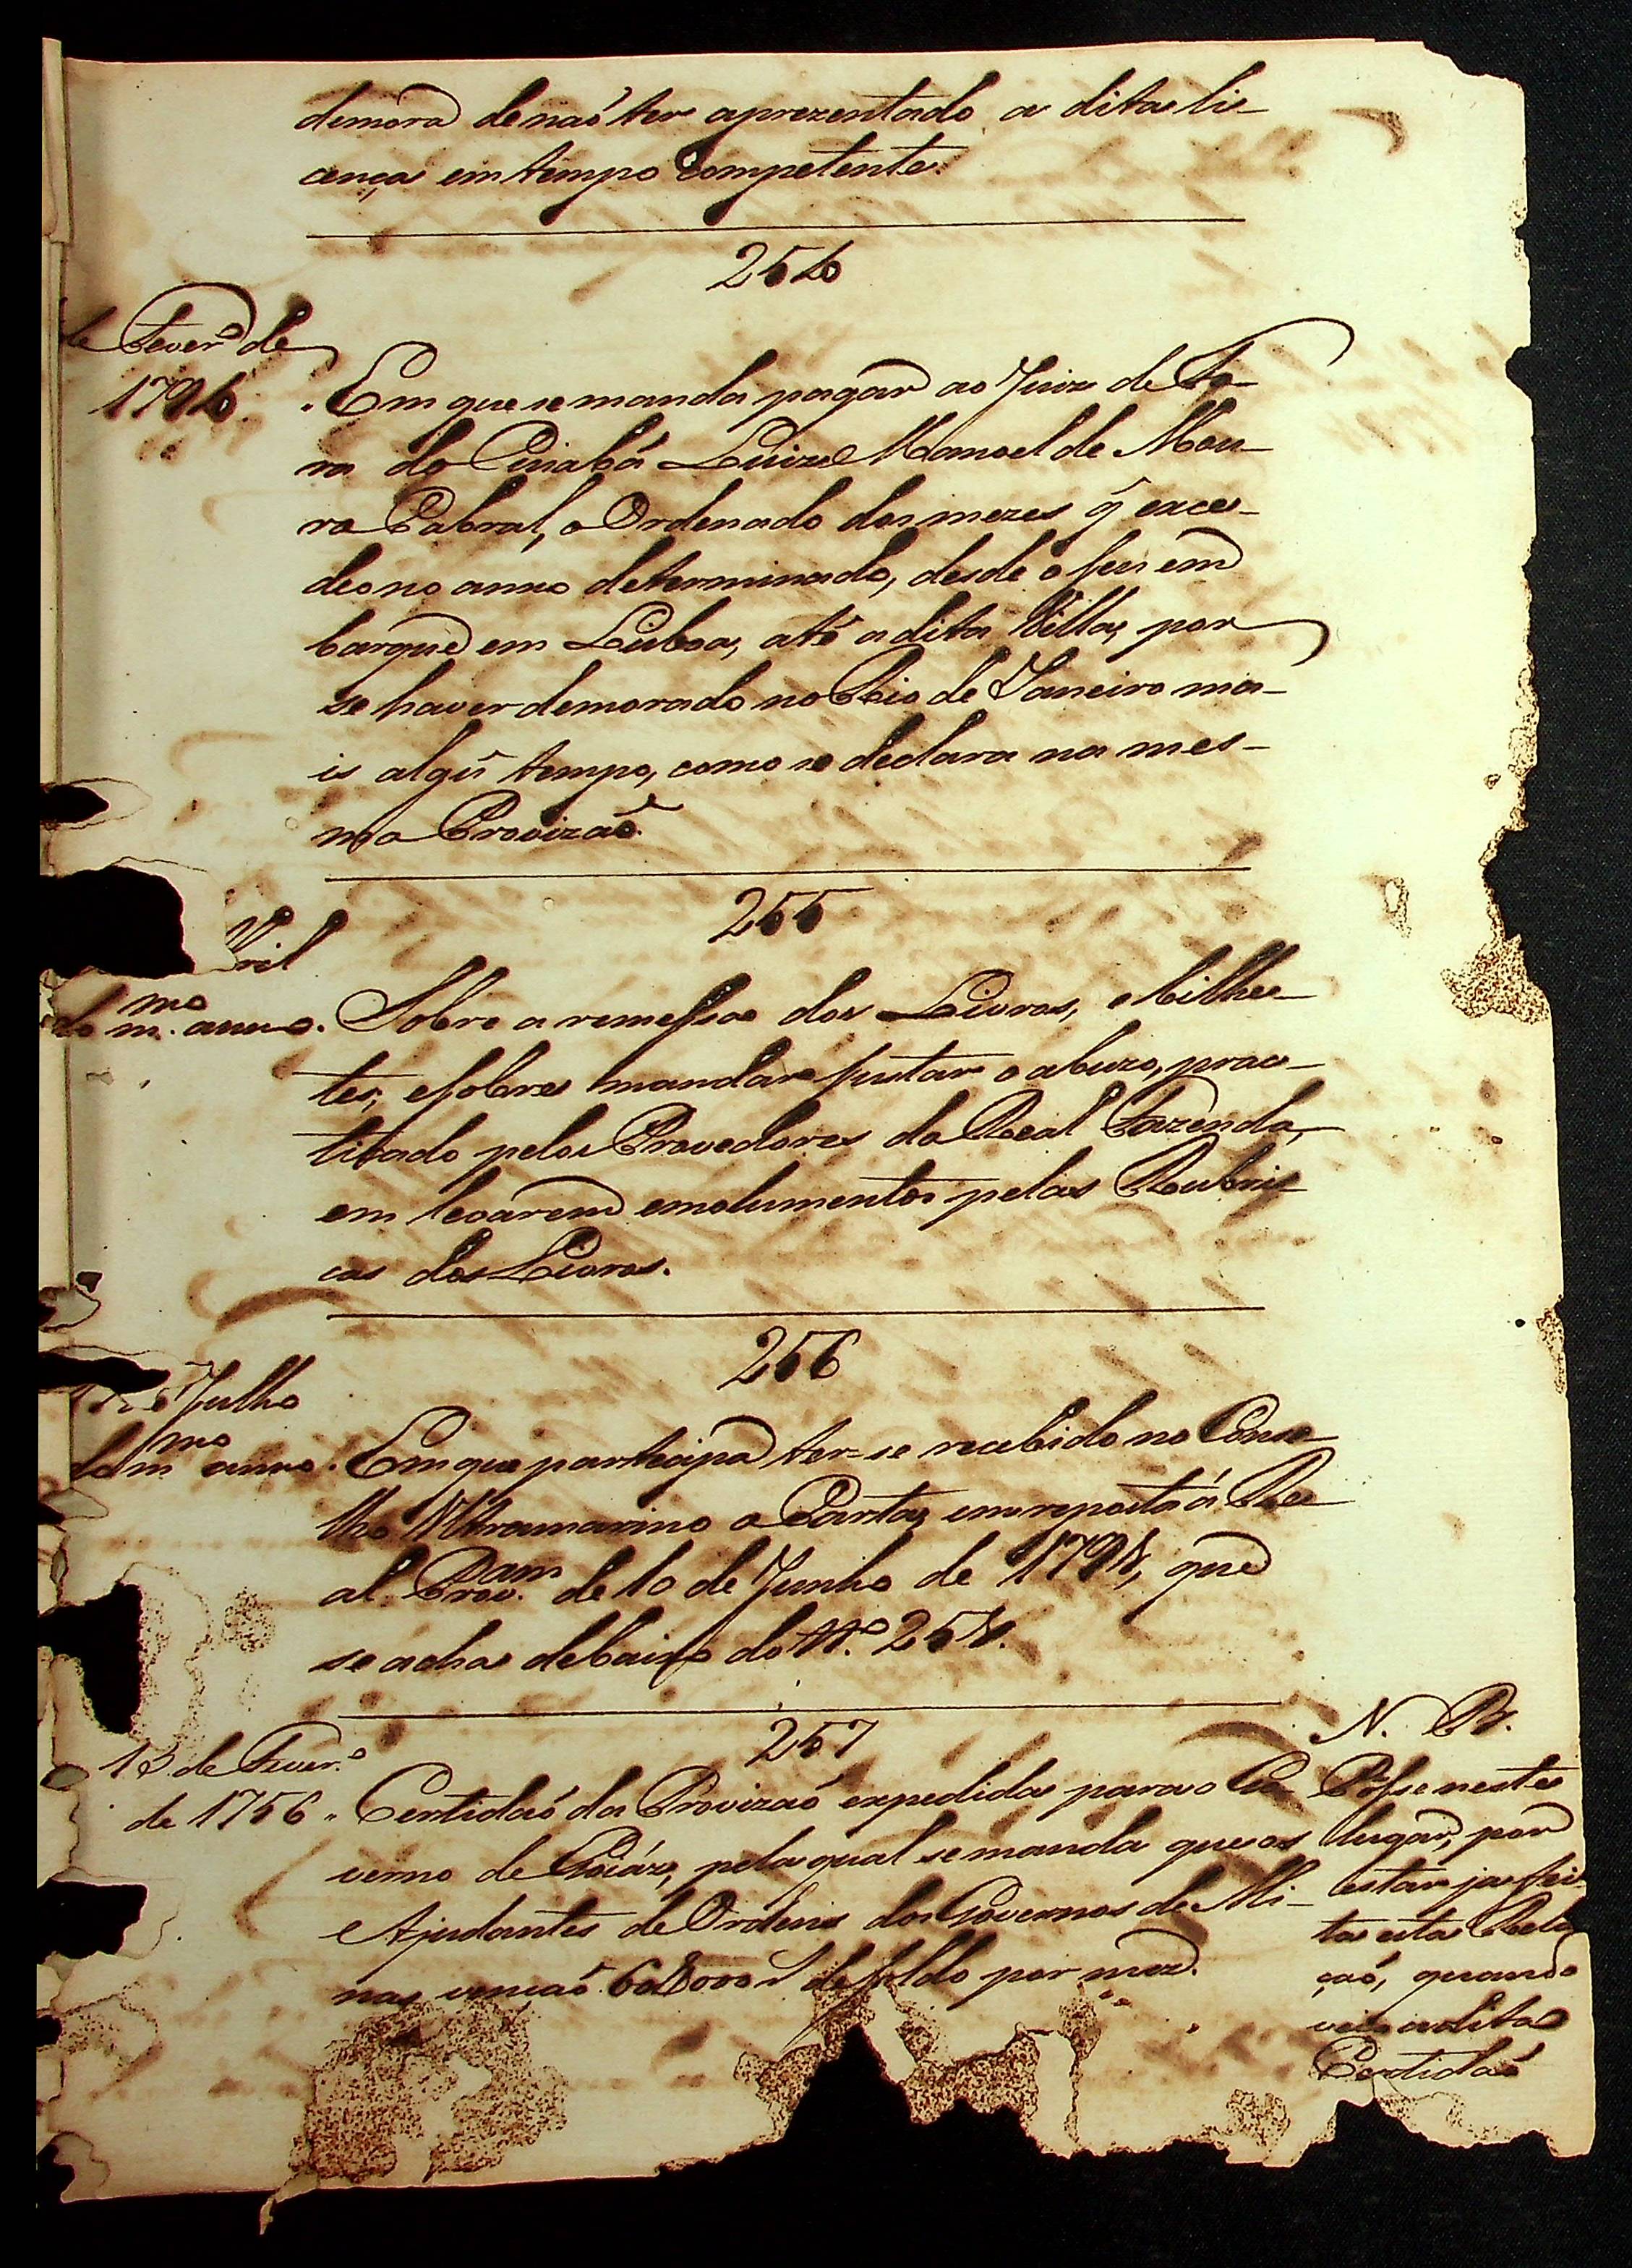 demora de naõ ter aprezentado a dita li-
cença em tempo competente.
254
de Fever.º de
1794.
Em que se manda pagar ao Juiz de Fo-
ra do Cuiabá Luiz Manoel de Mou-
ra Cabral, o Ordenado dos mezes q̃ exce-
deo no anno determinado, desde o seu em
barque em Lisboa, até a dita Villa, por
se haver demorado no Rio de Janeiro ma-
is algũ tempo, como se declara na mes-
ma Provizaõ.
255
ril
do m.mo anno.
Sobre a remessa dos Livros, e bilhe-
tes, e sobre mandar sustar o abuzo, prac-
ticado pelos Provedores da Real Fazenda,
em levarem emolumentos pelas Rubri-
cas dos Livros.
256
de Julho
do m.mo anno.
Em que participa ter-se recebido no Conse-
lho Ultramarino a Carta, em reposta á Re-
al Prov.am de 10 de Junho de 1794, que
se acha debaixo do N.º 254.
257
13 de Fever.º
de 1756.
Certidaõ da Provizaõ expedida para o Go-
verno de Goiáz, pela qual se manda que os
Ajudantes de Ordens dos Governos de Mi-
nas vençaõ de soldo por mez.
N. B.
Poz-se neste
lugar, por
estar ja fei-
ta esta Rela
çaõ, quando
veio a dita
Certidaõ